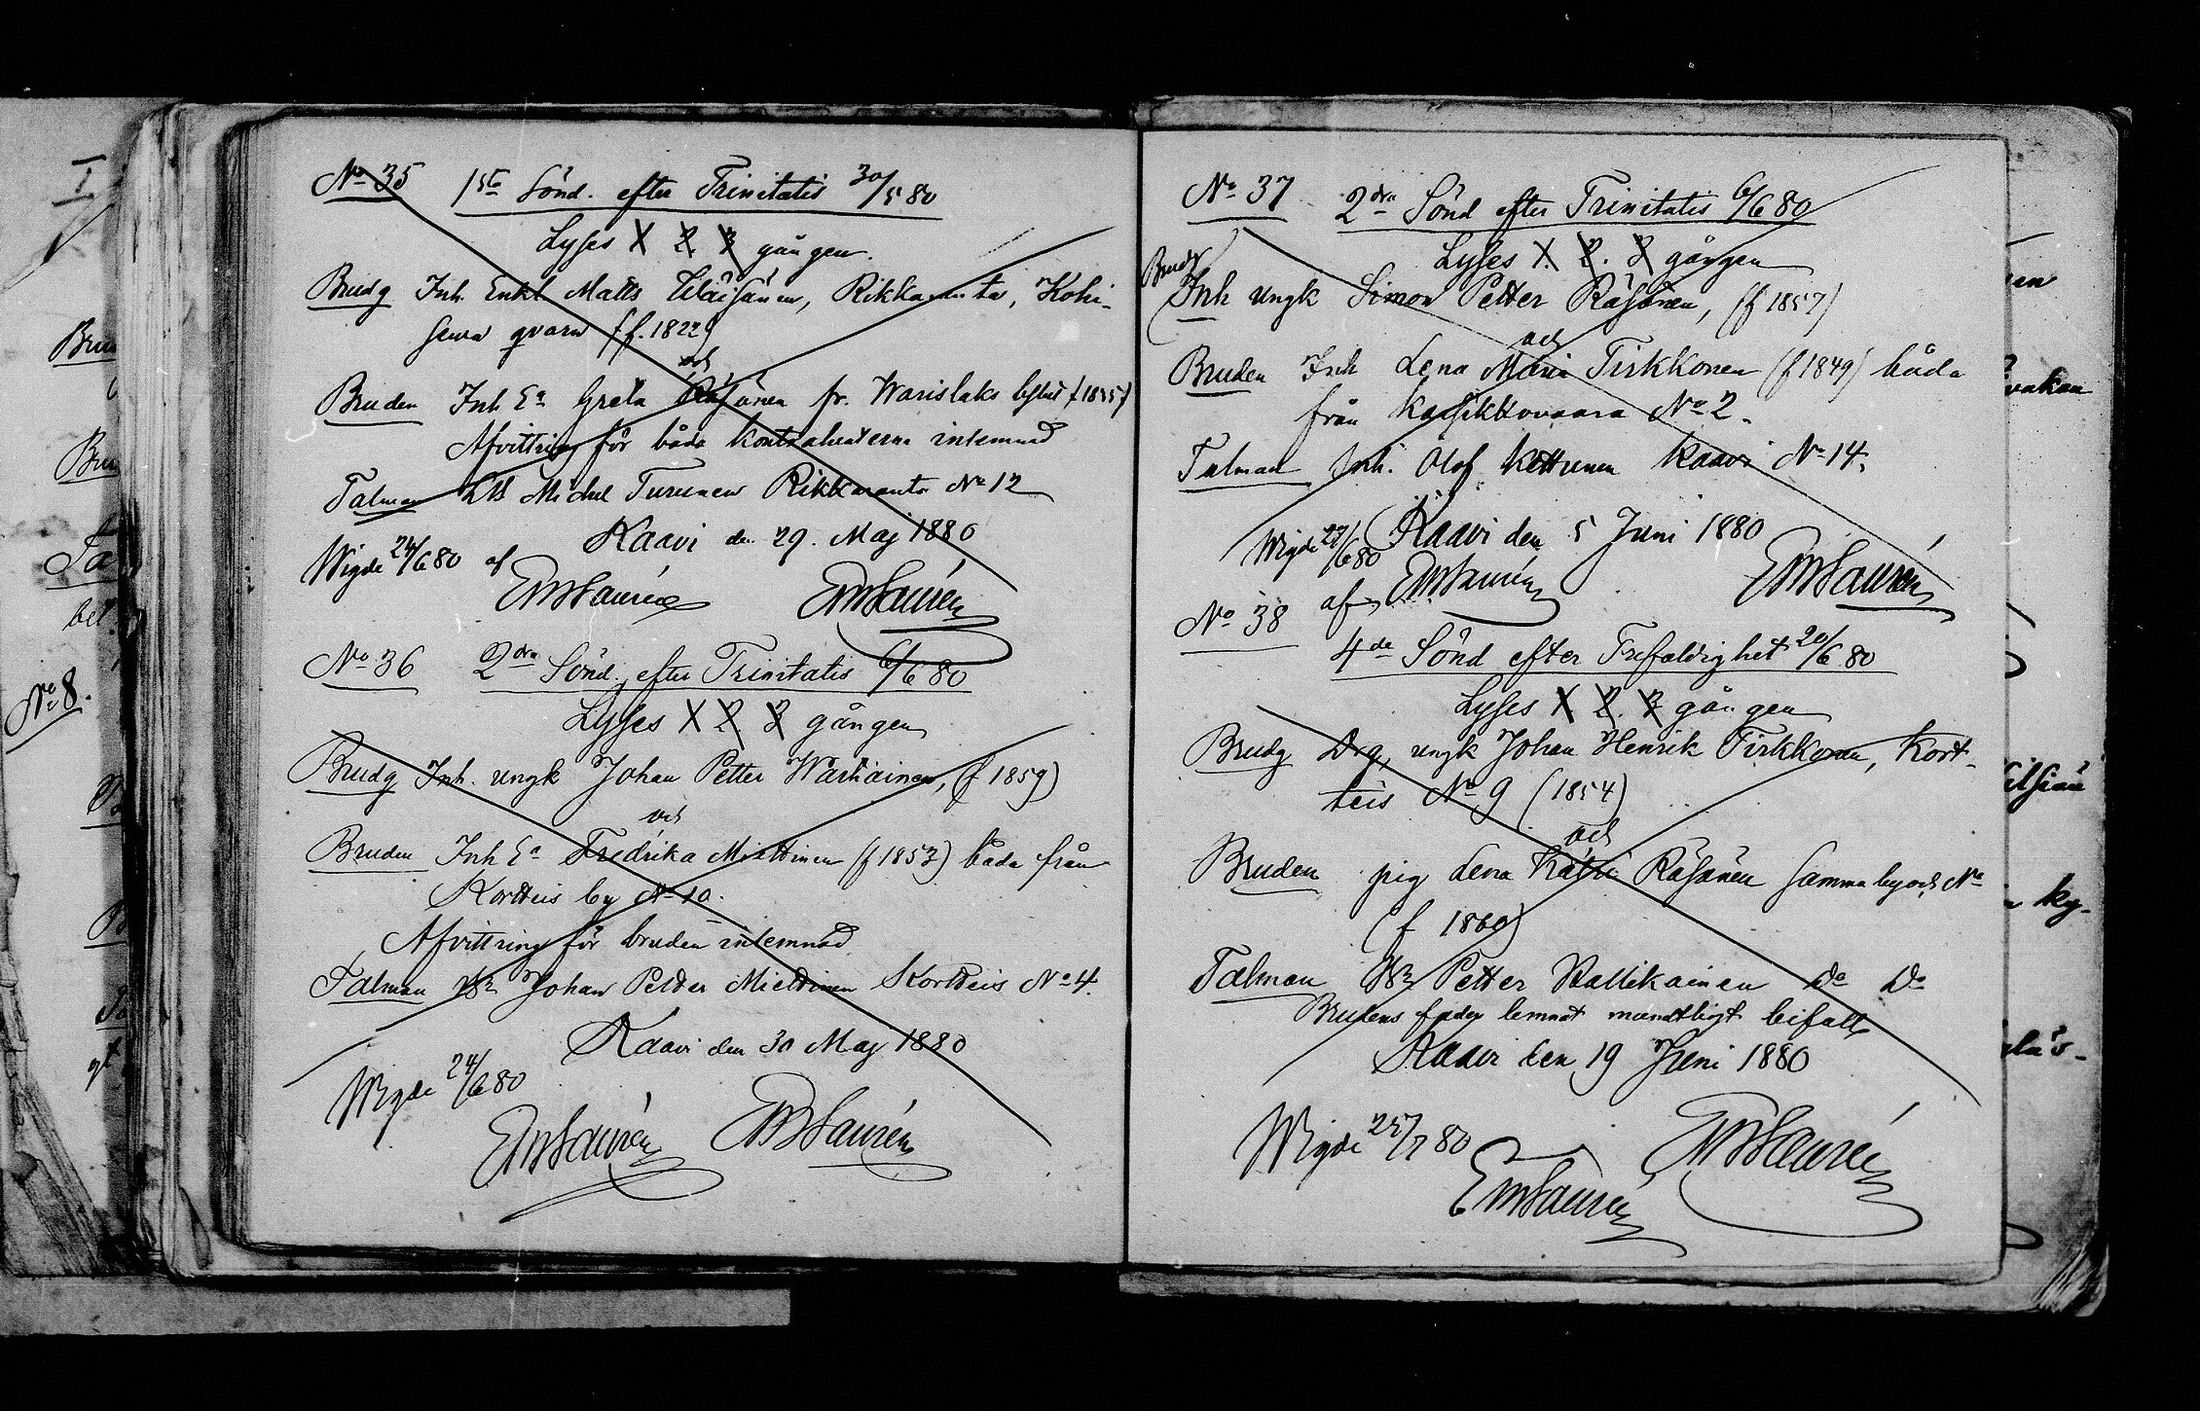 No 35 1sta Sönd. efter Trinitatis 30/5 80
Lyses 1 2 3 gången.
Brudg Inh. Enkl Matts Wäisänen, Rikkaranta, Kohi-
senva qvarn (f. 1822)
och
Bruden Inh Ea Greta Räsänen fr. Warislaks
Afvittring för båda kontrahenterna inlemnad
Talman Michel Turunen Rikkaranta No 12
Kaavi den 29. Maj 1880
Wigde 24/6 80 af
EWLaurén EWLaurén
No 36 2dra Sönd. efter Trinitatis 6/6 80
Lyses 1 2 3 gången
Brudg Inh. ungk Johan Petter Wartiainen, (f 1859)
och
Bruden Inh Ea Fredrika Miettinen (f 1853) båda från
Kortteis by No 10.
Afvittring för bruden inlemnad
Talman Johan Petter Miettinen Kortteis No 4.
Kaavi den 30 Maj 1880
Wigde 24/6 80
EWLaurén EWLaurén
No 37 2dra Sönd efter Trinitatis 6/6 80
Lyses 1. 2. 3 gången
Brudg
Inh ungk Simon Petter Räsänen, (f 1857)
och
Bruden Inh Lena Maria Tirkkonen (f 1849) båda
från Kosikkovaara No 2.
Talman Inh. Olof Kettunen Kaavi No 14.
Kaavi den 5 Juni 1880
Wigde 27/6 80
af EWLaurén EWLaurén
No 38
4de Sönd efter Trefaldighet 20/6 80
Lyses 1 2. 3 gången
Brudg Drg, ungk Johan Henrik Tirkkonen, Kort-
teis No 9 (1854)
och
Bruden pig Lena Katri Räsänen samma by och No
(f 1860)
Talman Petter Rattikainen Do Do
Brudens fader lemnat mundtligt bifall
Kaavi den 19 Juni 1880
Wigde 25/7 80
EWLaurén EWLaurén
No 8.